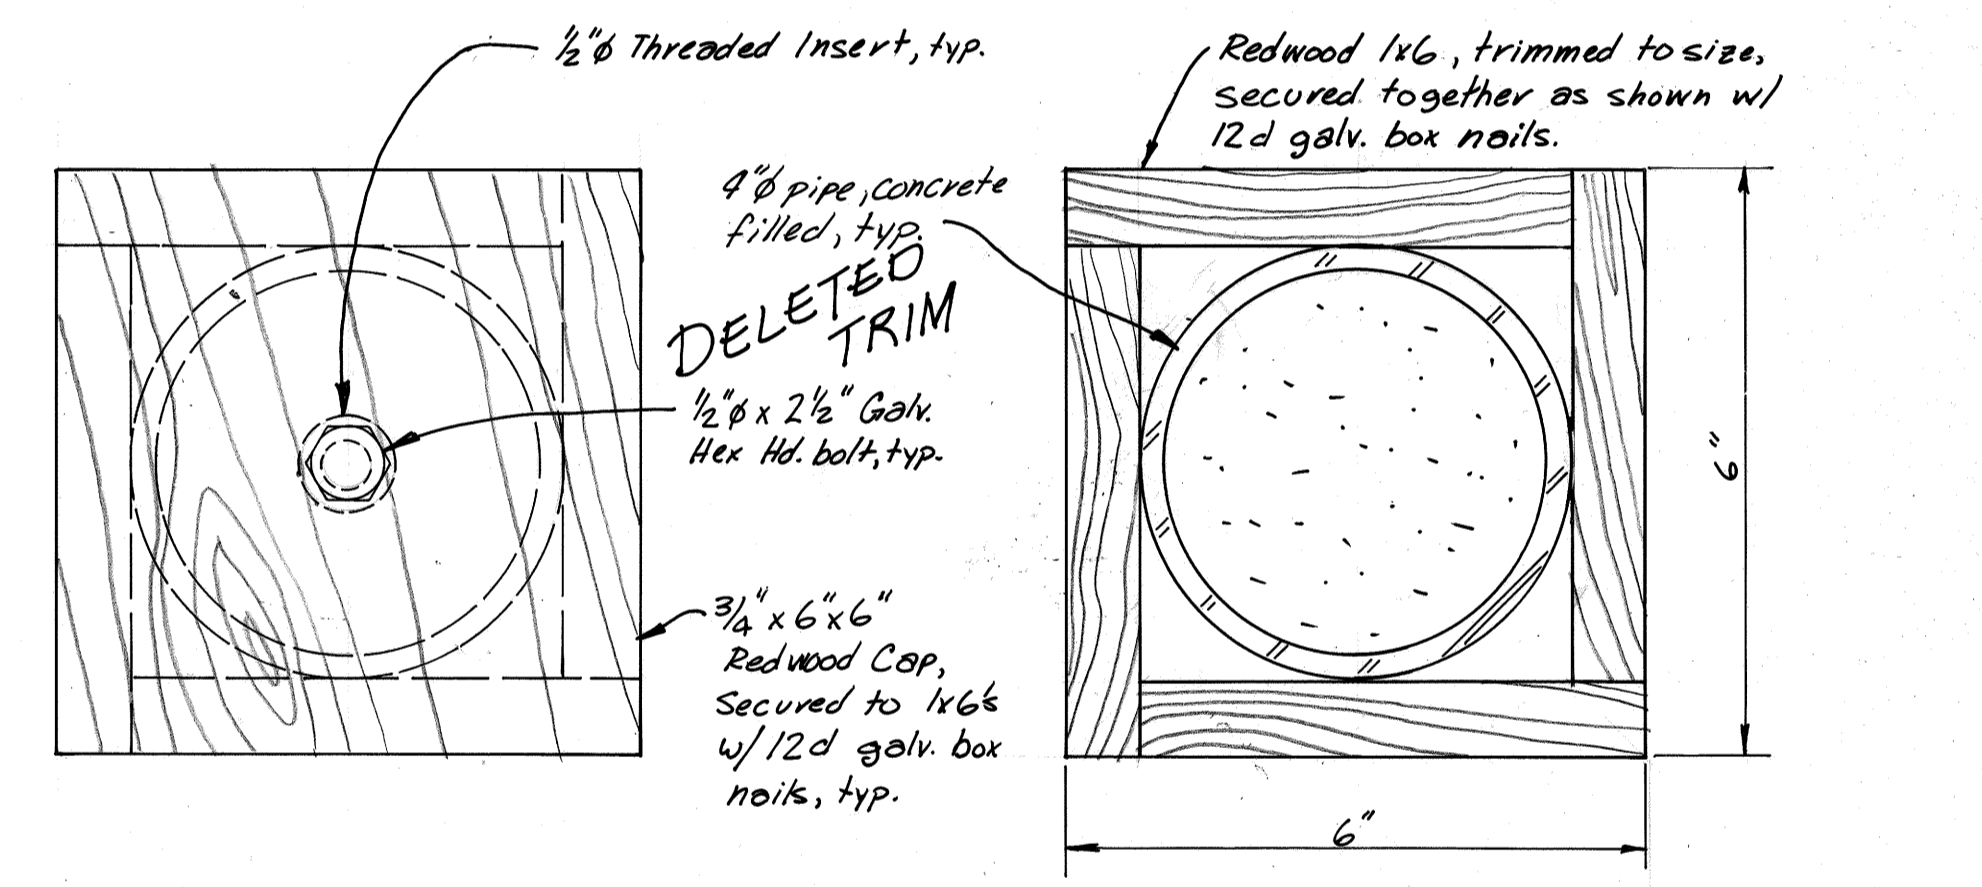 ½"ϕ Threaded Insert, typ.
Redwood 1x6, trimmed to size,
secured together as shown w/
12d galv. box nails.
4"ϕ pipe, concrete
filled, typ.
DELETED
TRIM
½"ϕ x 2½" Galv.
Hex Hd. bolt, typ.
¾" x 6" x 6"
Redwood Cap,
Secured to 1x6's
w/ 12d galv. box
nails, typ.
6"
6"